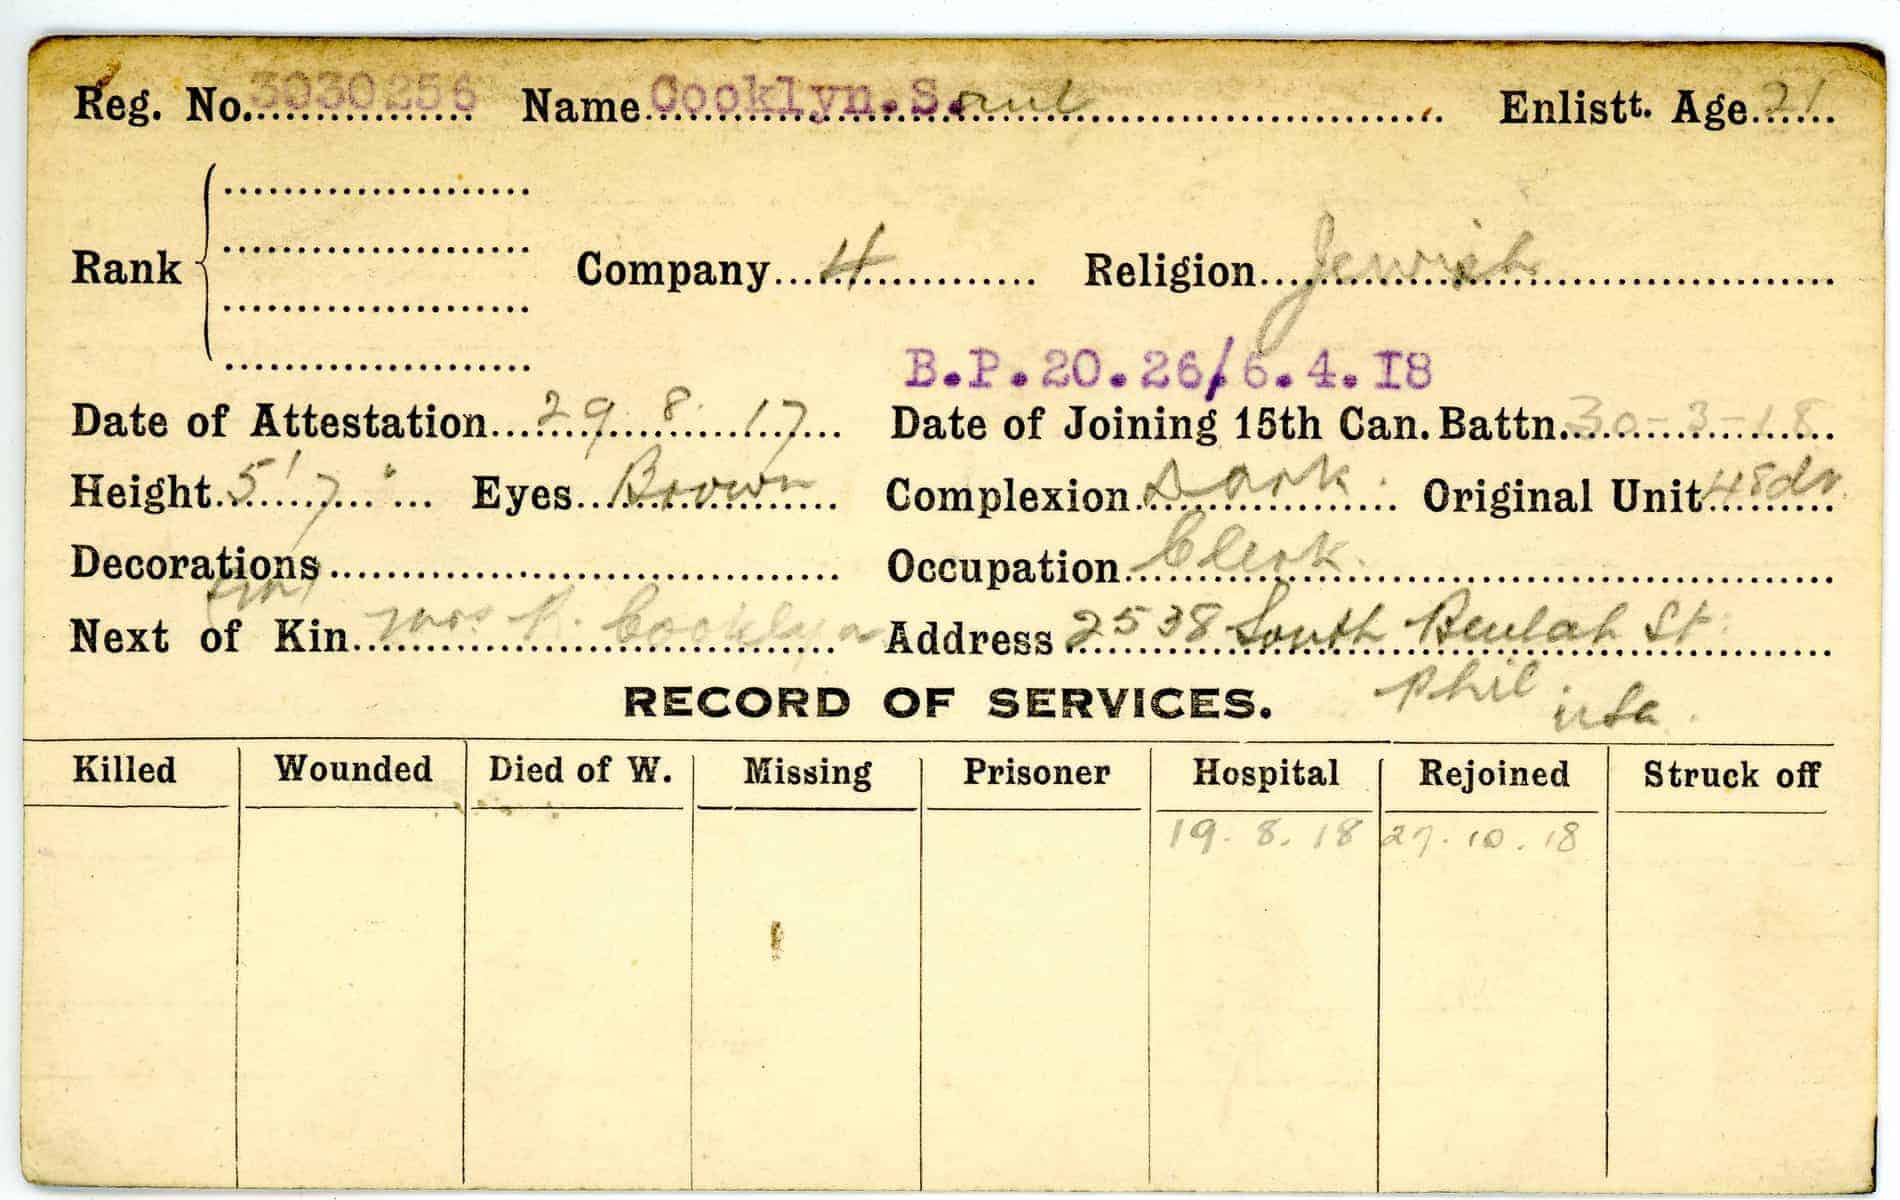 Reg. No. 3030256 Name Cooklyn.S.aul Enlistt. Age 21
Rank Company 4 Religion Jewish
B.P.20.26/6.4.18
Date of Attestation 29. 8. 17 Date of Joining 15th Can. Battn. 30-3-18
Height 5' 7" Eyes Brown Complexion Dark. Original Unit
Decorations Occupation Clerk.
Next of Kin Mrs R. Cooklyn Address 2538 South Beulah St.
Phil usa.
RECORD OF SERVICES.
Killed Wounded Died of W. Missing Prisoner Hospital Rejoined Struck off
19. 8. 18 27. 10. 18